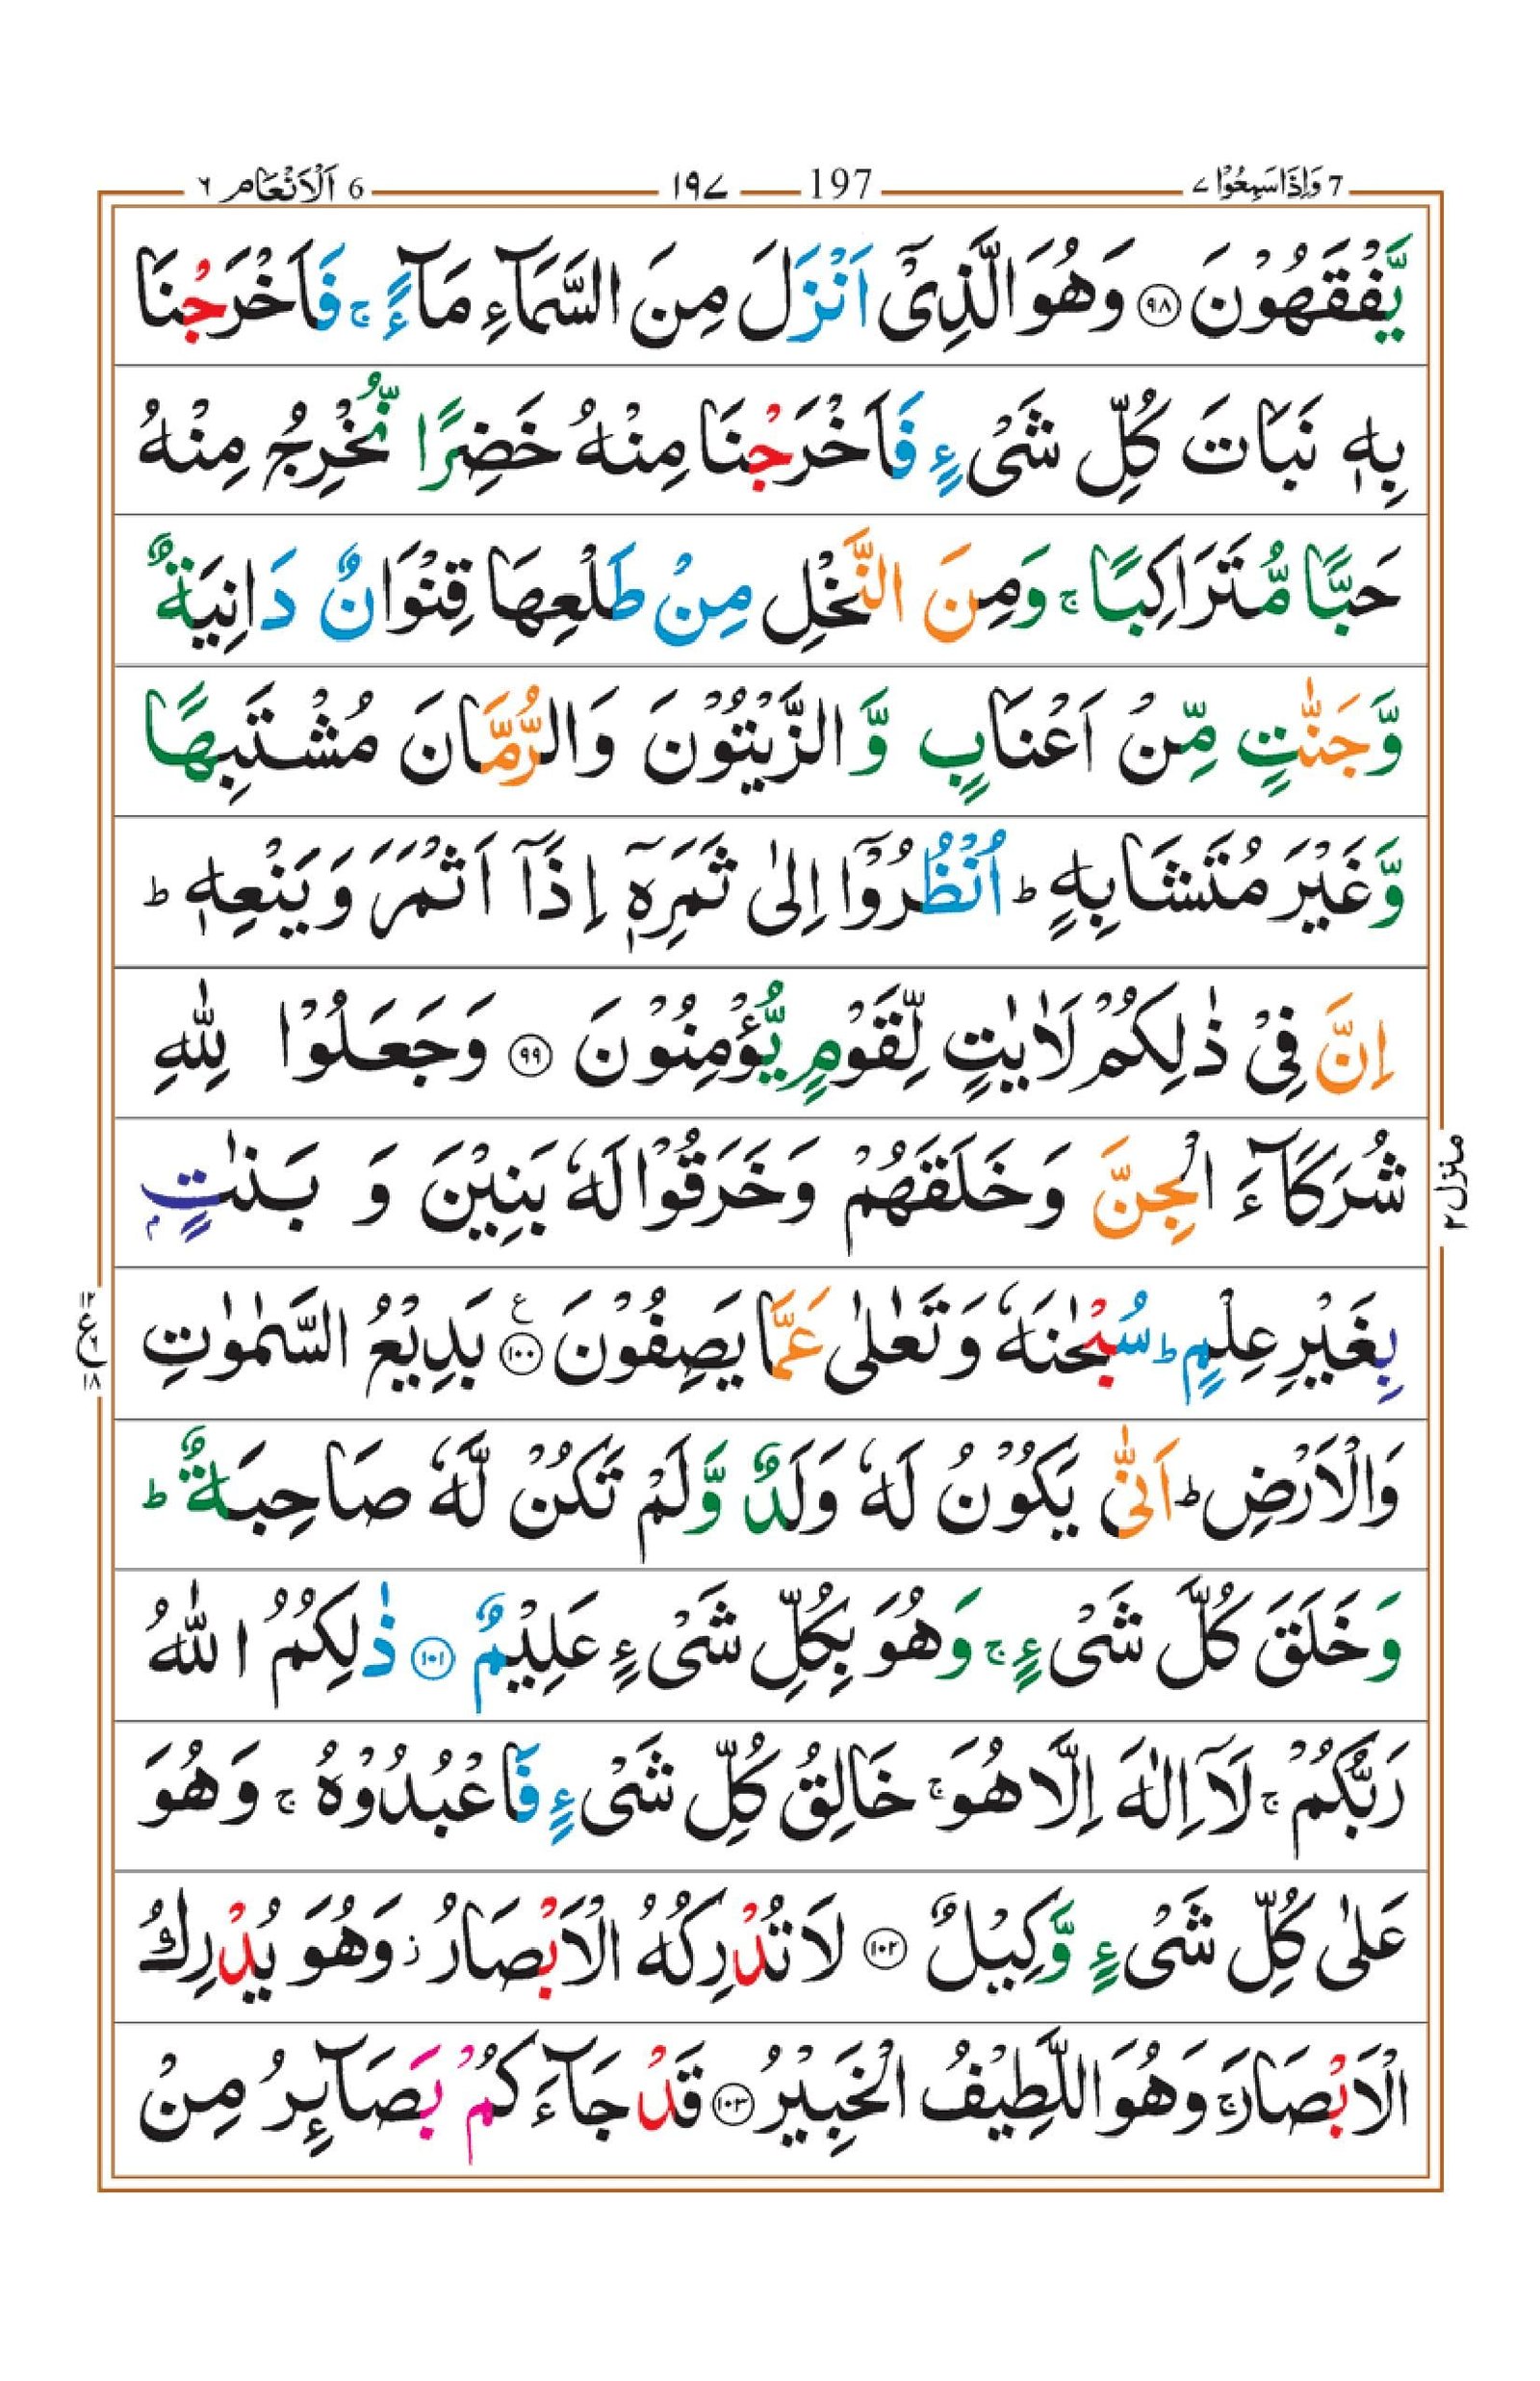 7 وَاِذَاسَمِعُوْا ٧
197 ١٩٧
6 اَلْاَنْعَام ٦
يَّفْقَهُوْنَ ﴿٩٨﴾ وَهُوَ الَّذِيْۤ اَنْزَلَ مِنَ السَّمَآءِ مَآءً ۚ فَاَخْرَجْنَا
بِهٖ نَبَاتَ كُلِّ شَيْءٍ فَاَخْرَجْنَا مِنْهُ خَضِرًا نُّخْرِجُ مِنْهُ
حَبًّا مُّتَرَاكِبًا ۚ وَمِنَ النَّخْلِ مِنْ طَلْعِهَا قِنْوَانٌ دَانِيَةٌ
وَّجَنّٰتٍ مِّنْ اَعْنَابٍ وَّالزَّيْتُوْنَ وَالرُّمَّانَ مُشْتَبِهًا
وَّغَيْرَ مُتَشَابِهٍ ؕ اُنْظُرُوْۤا اِلٰى ثَمَرِهٖۤ اِذَاۤ اَثْمَرَ وَيَنْعِهٖ ؕ
اِنَّ فِيْ ذٰلِكُمْ لَاٰيٰتٍ لِّقَوْمٍ يُّؤْمِنُوْنَ ﴿٩٩﴾ وَجَعَلُوْا لِلّٰهِ
شُرَكَآءَ الْجِنَّ وَخَلَقَهُمْ وَخَرَقُوْا لَهٗ بَنِيْنَ وَ بَنٰتٍۭ
بِغَيْرِ عِلْمٍ ؕ سُبْحٰنَهٗ وَتَعٰلٰى عَمَّا يَصِفُوْنَ ﴿١٠٠﴾ ع بَدِيْعُ السَّمٰوٰتِ
وَالْاَرْضِ ؕ اَنّٰى يَكُوْنُ لَهٗ وَلَدٌ وَّلَمْ تَكُنْ لَّهٗ صَاحِبَةٌ ؕ
وَخَلَقَ كُلَّ شَيْءٍ ۚ وَهُوَ بِكُلِّ شَيْءٍ عَلِيْمٌ ﴿١٠١﴾ ذٰلِكُمُ اللّٰهُ
رَبُّكُمْ ۚ لَاۤ اِلٰهَ اِلَّا هُوَ ۚ خَالِقُ كُلِّ شَيْءٍ فَاعْبُدُوْهُ ۚ وَهُوَ
عَلٰى كُلِّ شَيْءٍ وَّكِيْلٌ ﴿١٠٢﴾ لَا تُدْرِكُهُ الْاَبْصَارُ ؗ وَهُوَ يُدْرِكُ
الْاَبْصَارَ ۚ وَهُوَ اللَّطِيْفُ الْخَبِيْرُ ﴿١٠٣﴾ قَدْ جَآءَكُمْ بَصَآئِرُ مِنْ
منزل ٢
١٢ ع ١٨